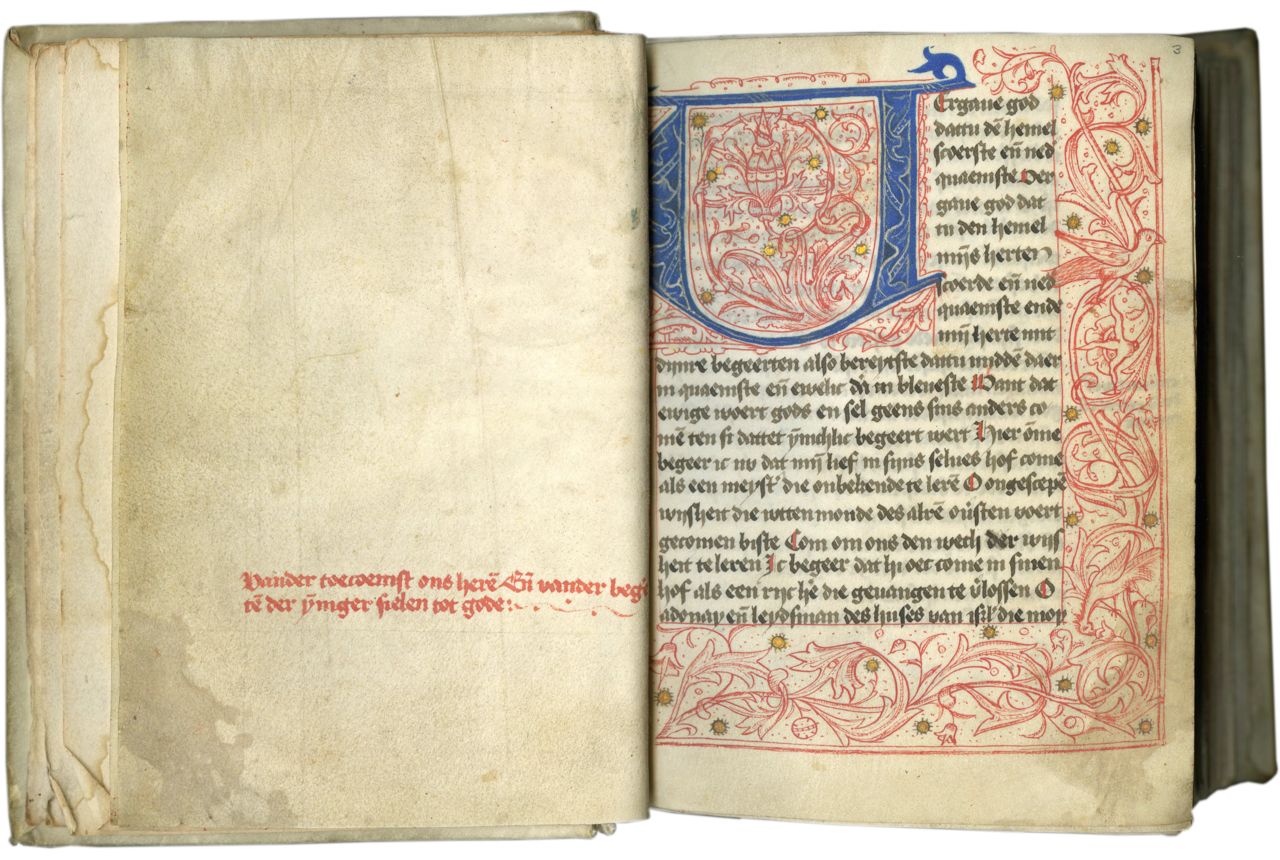 Vander toecoemst ons herē Eñ vander beg
tē der ȳniger sielen tot gode:
3
VErgaue god
dattu dē hemel
scoerste eñ ned
quaemste Ver
gaue god dat
tu den hemel
mijs herten
scoerde eñ ned
quaemste ende
mijn herte mit
dijnre begeerten also bereytste dattu midde daer
in quaemste eñ ewelic dair in bleueste Want dat
ewige woert gods en sel geens sins anders co
mē ten si dattet ȳnichlic begeert wert Hier ōme
begeer ic nu dat mijn lief in sijns selues hof come
als een meyster die onbekende te lerē O ongescepē
wijsheit die wtten monde des alrē ouersten voert
gecomen biste Com om ons den wech der wijs
heit te leren Ic begeer dat hi oec come in sinen
hof als een rijc hē die geuangen te verlossen O
adonay eñ leydsman des huses van israel die moy